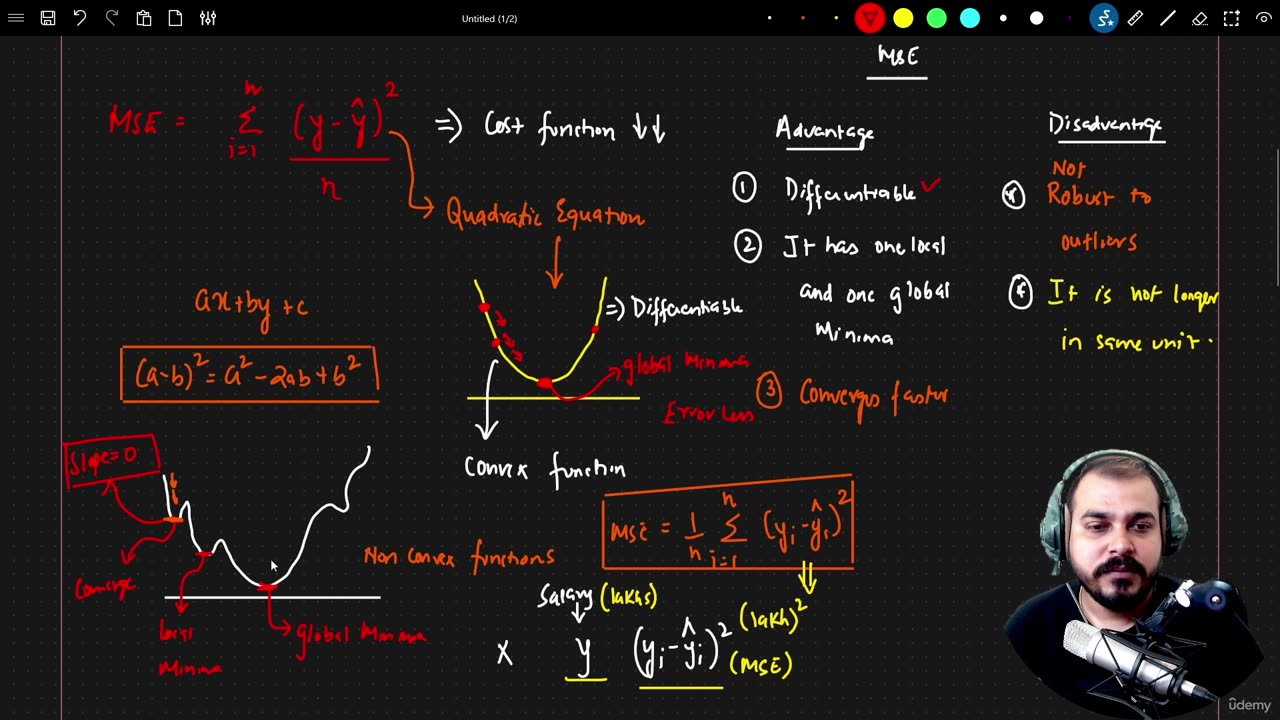 Untitled (1/2)
MSE
MSE = n Σ i=1 (y - ŷ)² / n ⇒ Cost function ↓↓
Quadratic Equation
ax+by+c
(a-b)² = a² - 2ab + b²
⇒ Differentiable
global Minima
Error Less
Convex function
Slope=0
Converge
local
Minima
global Minima
Non Convex functions
Advantage
① Differentiable ✓
② It has one local
and one global
Minima
③ Converges faster
Disadvantage
Not
Robust to
outliers
It is not longer
in same unit.
MSE = 1/n n Σ i=1 (yi - ŷi)²
Salary (lakhs)
(lakh)²
x y (yi - ŷi)² (MSE)
ûdemy